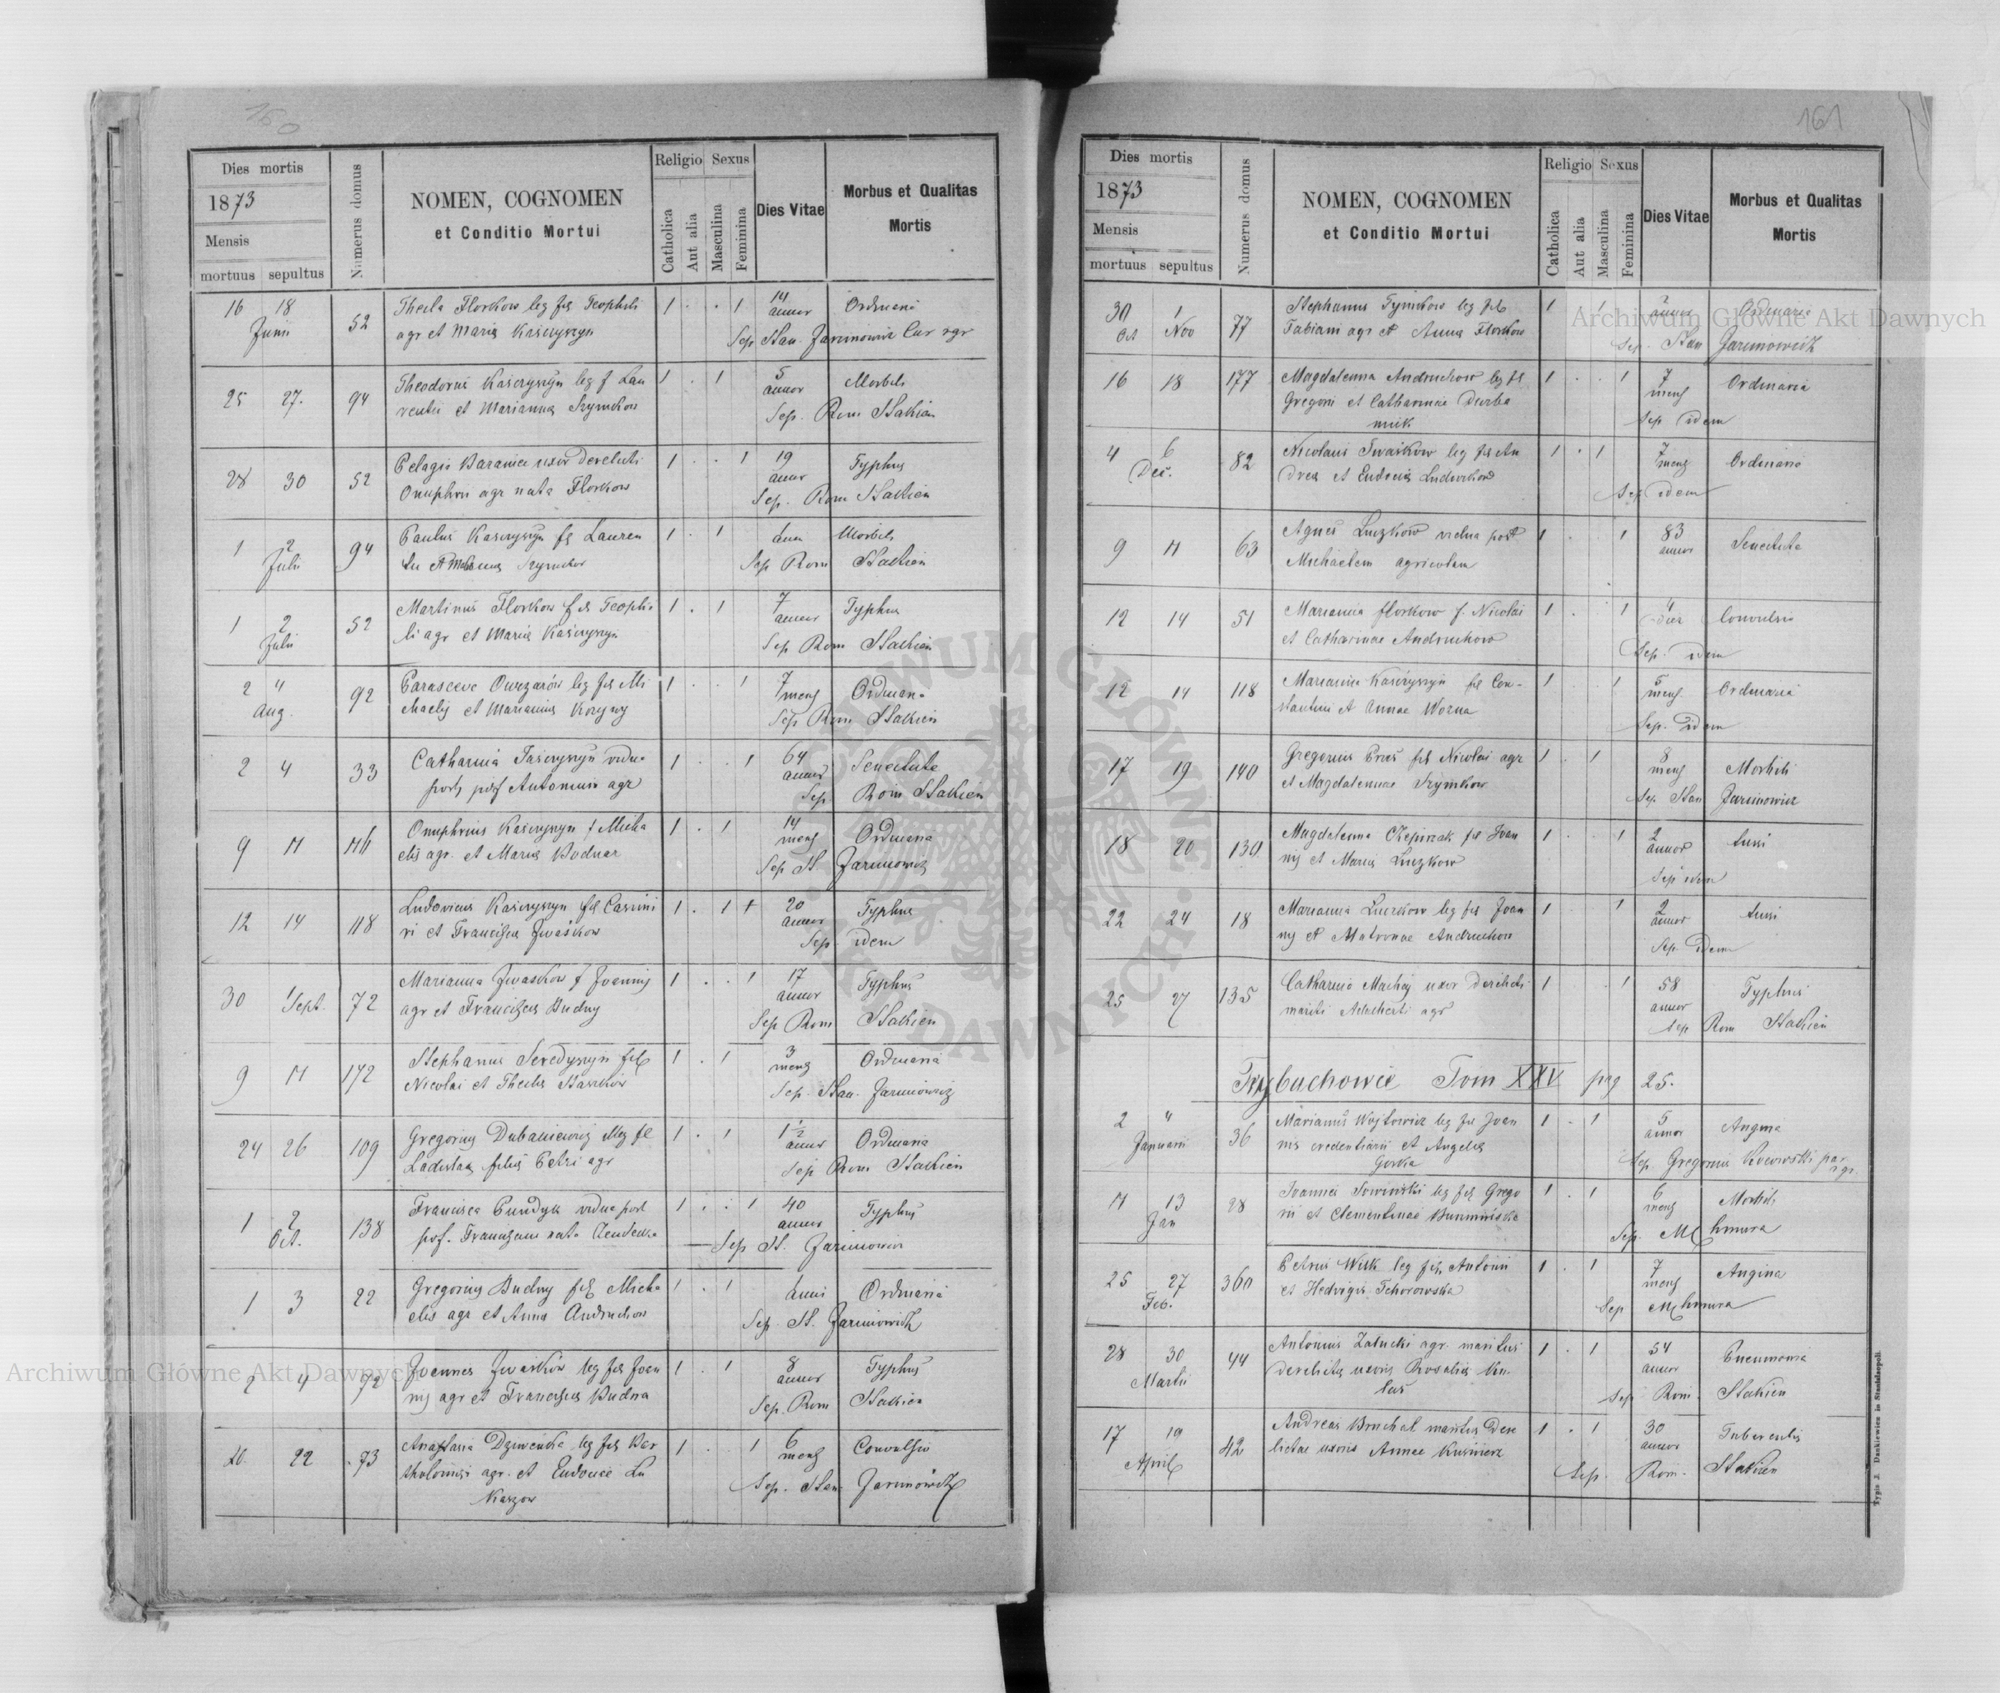 160
Dies mortis
1873
Mensis
mortuus sepultus
Numerus domus
NOMEN, COGNOMEN
et Conditio Mortui
Religio Sexus
Catholica
Aut alia
Masculina
Feminina
Dies Vitae
Morbus et Qualitas
Mortis
16 18 52 Thecla Florkow leg fil Teophili 1 . . 1 14 Ordinaria
Junii agr et Maria annor
Sep Stan. Jarimowicz Cur agr
25 27. 94 Theodorus leg f Lau 1 . 1 5 Morbili
rentii et Marianna Szymkow annor
Sep. Rom Stakien
28 30 52 Pelagia uxor derelicti 1 . . 1 19 Typhus
Onuphrii agr nata Florkow annor
Sep. Rom Stakien
1 2 94 Paulus fil Lauren 1 . 1 Morbili
Julii
Sep Rom Stakien
1 2 52 Martinus Florkow fil Teophi 1 . 1 7 Typhus
Julii li agr et Maria annor
Sep Rom Stakien
2 4 92 Parasceve Owczarów leg fil Mi 1 . . 1 7 Ordinaria
Aug. chaelis et Marianna mens
Sep Rom Stakien
2 4 33 Catharina vidua 1 . . 1 64 Senectute
post Antonium agr annor
Sep Rom Stakien
9 11 116 Onuphrius f Micha 1 . 1 14 Ordinaria
elis agr. et Maria Bodnar mens
Sep St Jarimowicz
12 14 118 Ludovicus fil Casimi 1 . 1 20 Typhus
ri et Francisca Iwaśkow annor
Sep. idem
30 1 Sept. 72 Marianna Iwaskow f Joannis 1 . . 1 17 Typhus
agr et Francisca Budny annor
Sep Rom Stakien
9 11 172 Stephanus fil 1 . 1 3 Ordinaria
Nicolai et Thecla mens
Sep. Stan. Jarimowicz
24 26 109 Gregorius leg fil 1 . 1 1 1/2 Ordinaria
filius Petri agr annor
Sep Rom Stakien
1 2 138 Francisca Pundyk vidua post 1 . . 1 40 Typhus
Oct. nata annor
Sep St. Jarimowicz
1 3 22 Gregorius Budny fil Micha 1 . 1 Ordinaria
elis agr et Anna Andruchow
Sep. St. Jarimowicz
2 4 72 Joannes Iwaśków leg fil Joan 1 . 1 8 Typhus
nis agr et Francisca Budna annor
Sep. Rom Stakien
20. 22 73 Anastasia leg fil Bar 1 . . 1 6 Convulsio
tholomei agr. et Eudocia Lu mens
Sep. Stan Jarimowicz
161
Dies mortis
1873
Mensis
mortuus sepultus
Numerus domus
NOMEN, COGNOMEN
et Conditio Mortui
Religio Sexus
Catholica
Aut alia
Masculina
Feminina
Dies Vitae
Morbus et Qualitas
Mortis
30 1 77 Stephanus Tymkow leg fil 1 1 Ordinaria
Oct Nov Fabiani agr et Anna Florkow annor
Sep. Stan Jarimowicz
16 18 177 Magdalenna Andruchow leg fil 1 . . 1 7 Ordinaria
Gregorii et Catharinae Durba mens
niuk Sep idem
4 6 82 Nicolaus Iwaśków leg fil An 1 . 1 7 Ordinaria
Dec. drea et Eudocia mens
Sep idem
9 11 63 Agnes Luczkow vidua post 1 . . 1 83 Senectute
Michaelem agricolam annor
12 14 51 Marianna Florkow f. Nicolai 1 . . 1 4 Convulsio
et Catharinae Andruchow dier
Sep. idem
12 14 118 Marianna fil Con- 1 . . 1 5 Ordinaria
stantini et Annae Wozna mens
Sep. idem
17 19 140 Gregorius fil Nicolai agr 1 . 1 8 Morbili
et Magdalennae Szymkow mens
Sep. Stan Jarimowicz
18 20 130 Magdalenna fil Joan 1 . . 1 2 tussi
nis et Maria Luczkow annor
Sep idem
22 24 18 Marianna Luczkow leg fil Joan 1 1 2 tussi
nis et Matronae Andruchow annor
Sep. idem
25 27 135 Catharina uxor derelicti 1 . . 1 58 Typhus
mariti agr annor
Sep Rom Stakien
Trybuchowce Tom XXV pag 25.
2 4 36 Marianus Wojtowicz leg fil Joan 1 . 1 5 Angina
Januarii nis credentiarii et Angela annor
Gorka Sep. Gregorius Kocowski par agr.
11 13 28 Joannes Sowiński leg fil Grego 1 . 1 6 Morbili
Jan rii et Clementinae mens
Sep. M Chmura
25 27 360 Petrus Wilk leg fil Antonii 1 . 1 7 Angina
Feb. et Hedvigis Tchorowska mens
Sep M Chmura
28 30 44 Antonius Zatucki agr. maritus 1 . 1 54 Pneumonia
Martii derelictus uxoris Rosalia annor
Sep Rom. Stakien
17 19 42 Andreas Bruchal maritus dere 1 . 1 30 Tuberculis
April lictae uxoris Annae Kusnierz annor
Sep. Rom. Stakien
Typis J. Dankiewicz in Stanislaopoli.
Archiwum Główne Akt Dawnych
Archiwum Główne Akt Dawnych
ARCHIWUM GŁÓWNE AKT DAWNYCH